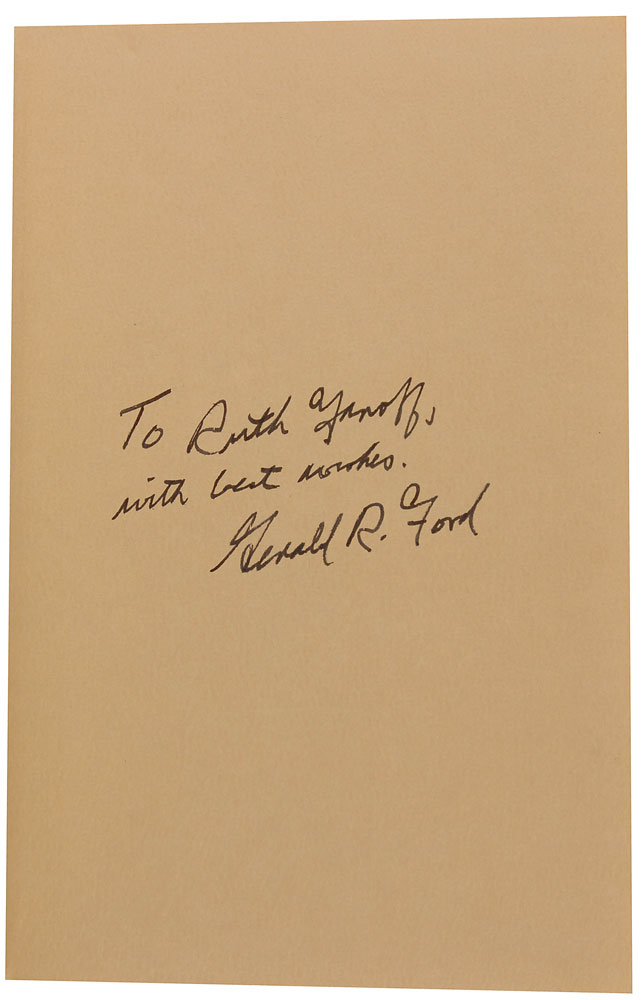 To Ruth Yanoff,
with best wishes.
Gerald R. Ford